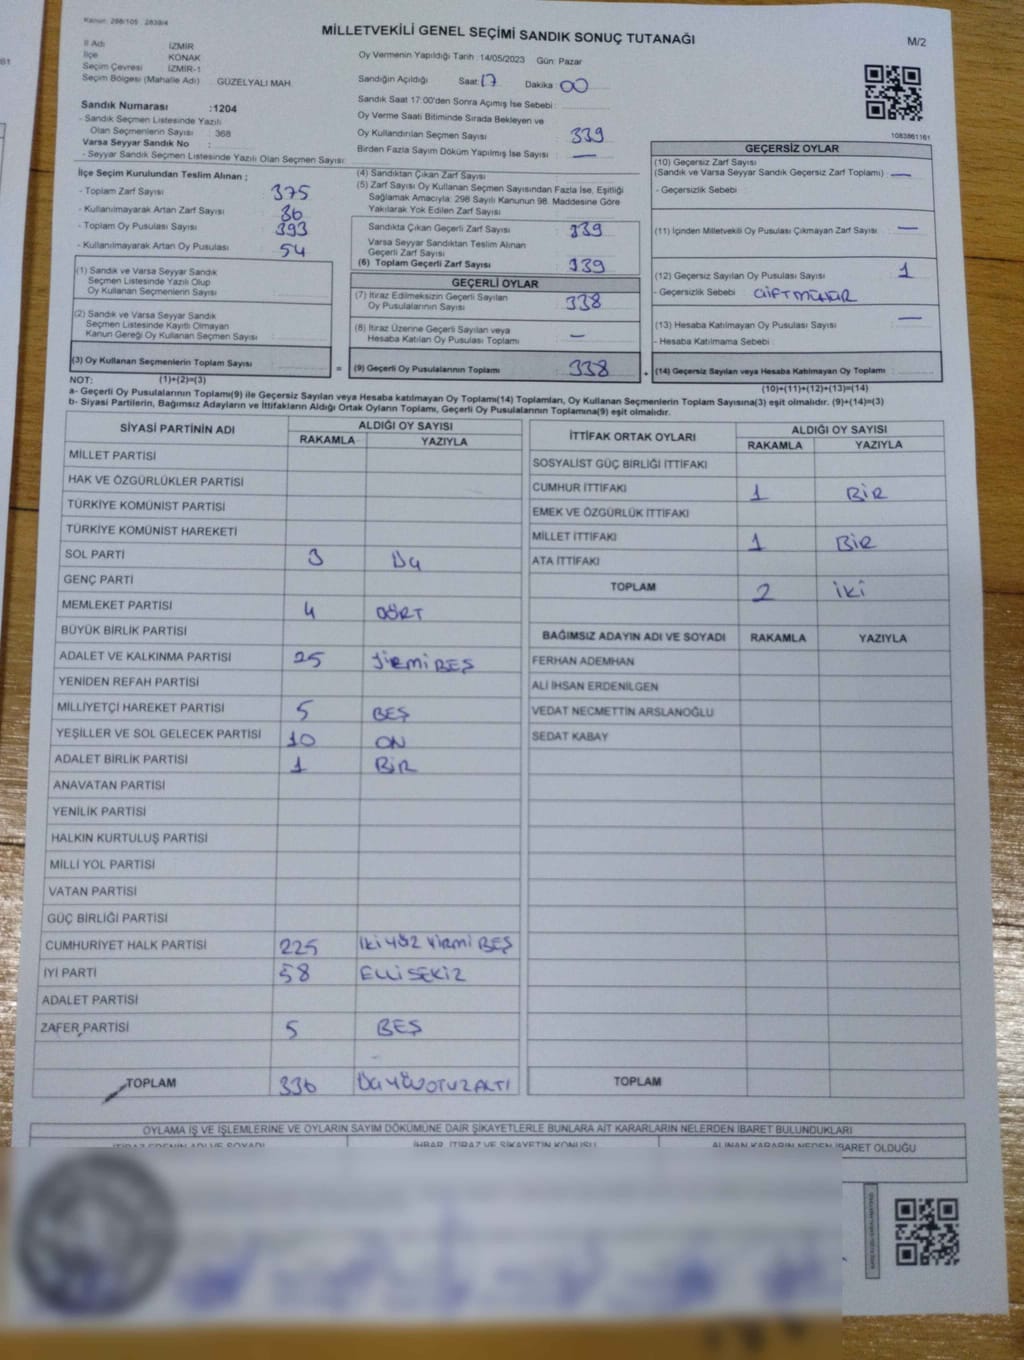 Kanun: 298/105 2839/4
MİLLETVEKİLİ GENEL SEÇİMİ SANDIK SONUÇ TUTANAĞI
M/2
İl Adı İZMİR
İlçe KONAK
Seçim Çevresi İZMİR-1
Seçim Bölgesi (Mahalle Adı) GÜZELYALI MAH.
Oy Vermenin Yapıldığı Tarih :14/05/2023 Gün: Pazar
Sandığın Açıldığı Saat: 17 Dakika: 00
Sandık Saat 17:00'den Sonra Açılmış İse Sebebi :
Oy Verme Saati Bitiminde Sırada Bekleyen ve
Oy Kullandırılan Seçmen Sayısı 339
Birden Fazla Sayım Döküm Yapılmış İse Sayısı : —
Sandık Numarası :1204
- Sandık Seçmen Listesinde Yazılı
Olan Seçmenlerin Sayısı : 368
Varsa Seyyar Sandık No :
- Seyyar Sandık Seçmen Listesinde Yazılı Olan Seçmen Sayısı:
1083861161
İlçe Seçim Kurulundan Teslim Alınan ;
- Toplam Zarf Sayısı : 375
- Kullanılmayarak Artan Zarf Sayısı : 36
- Toplam Oy Pusulası Sayısı : 393
- Kullanılmayarak Artan Oy Pusulası : 54
(1) Sandık ve Varsa Seyyar Sandık
Seçmen Listesinde Yazılı Olup
Oy Kullanan Seçmenlerin Sayısı :
(2) Sandık ve Varsa Seyyar Sandık
Seçmen Listesinde Kayıtlı Olmayan
Kanun Gereği Oy Kullanan Seçmen Sayısı :
(3) Oy Kullanan Seçmenlerin Toplam Sayısı :
(4) Sandıktan Çıkan Zarf Sayısı :
(5) Zarf Sayısı Oy Kullanan Seçmen Sayısından Fazla İse, Eşitliği
Sağlamak Amacıyla; 298 Sayılı Kanunun 98. Maddesine Göre
Yakılarak Yok Edilen Zarf Sayısı :
Sandıkta Çıkan Geçerli Zarf Sayısı : 339
Varsa Seyyar Sandıktan Teslim Alınan
Geçerli Zarf Sayısı :
(6) Toplam Geçerli Zarf Sayısı : 339
GEÇERLİ OYLAR
(7) İtiraz Edilmeksizin Geçerli Sayılan
Oy Pusulalarının Sayısı : 338
(8) İtiraz Üzerine Geçerli Sayılan veya
Hesaba Katılan Oy Pusulası Toplamı : —
= (9) Geçerli Oy Pusulalarının Toplamı : 338
GEÇERSİZ OYLAR
(10) Geçersiz Zarf Sayısı
(Sandık ve Varsa Seyyar Sandık Geçersiz Zarf Toplamı) : —
- Geçersizlik Sebebi :
(11) İçinden Milletvekili Oy Pusulası Çıkmayan Zarf Sayısı : —
(12) Geçersiz Sayılan Oy Pusulası Sayısı : 1
- Geçersizlik Sebebi : ÇİFT MÜHÜR
(13) Hesaba Katılmayan Oy Pusulası Sayısı : —
- Hesaba Katılmama Sebebi :
+ (14) Geçersiz Sayılan veya Hesaba Katılmayan Oy Toplamı :
NOT: (1)+(2)=(3)
(10)+(11)+(12)+(13)=(14)
a- Geçerli Oy Pusulalarının Toplamı(9) ile Geçersiz Sayılan veya Hesaba katılmayan Oy Toplamı(14) Toplamları, Oy Kullanan Seçmenlerin Toplam Sayısına(3) eşit olmalıdır. (9)+(14)=(3)
b- Siyasi Partilerin, Bağımsız Adayların ve İttifakların Aldığı Ortak Oyların Toplamı, Geçerli Oy Pusulalarının Toplamına(9) eşit olmalıdır.
SİYASİ PARTİNİN ADI ALDIĞI OY SAYISI
RAKAMLA YAZIYLA
MİLLET PARTİSİ
HAK VE ÖZGÜRLÜKLER PARTİSİ
TÜRKİYE KOMÜNİST PARTİSİ
TÜRKİYE KOMÜNİST HAREKETİ
SOL PARTİ 3 Üç
GENÇ PARTİ
MEMLEKET PARTİSİ 4 DÖRT
BÜYÜK BİRLİK PARTİSİ
ADALET VE KALKINMA PARTİSİ 25 YİRMİ BEŞ
YENİDEN REFAH PARTİSİ
MİLLİYETÇİ HAREKET PARTİSİ 5 BEŞ
YEŞİLLER VE SOL GELECEK PARTİSİ 10 ON
ADALET BİRLİK PARTİSİ 1 BİR
ANAVATAN PARTİSİ
YENİLİK PARTİSİ
HALKIN KURTULUŞ PARTİSİ
MİLLİ YOL PARTİSİ
VATAN PARTİSİ
GÜÇ BİRLİĞİ PARTİSİ
CUMHURİYET HALK PARTİSİ 225 İKİ YÜZ YİRMİ BEŞ
İYİ PARTİ 58 ELLİ SEKİZ
ADALET PARTİSİ
ZAFER PARTİSİ 5 BEŞ
TOPLAM 336 ÜÇ YÜZ OTUZ ALTI
İTTİFAK ORTAK OYLARI ALDIĞI OY SAYISI
RAKAMLA YAZIYLA
SOSYALİST GÜÇ BİRLİĞİ İTTİFAKI
CUMHUR İTTİFAKI 1 BİR
EMEK VE ÖZGÜRLÜK İTTİFAKI
MİLLET İTTİFAKI 1 BİR
ATA İTTİFAKI
TOPLAM 2 İKİ
BAĞIMSIZ ADAYIN ADI VE SOYADI RAKAMLA YAZIYLA
FERHAN ADEMHAN
ALİ İHSAN ERDENİLGEN
VEDAT NECMETTİN ARSLANOĞLU
SEDAT KABAY
TOPLAM
OYLAMA İŞ VE İŞLEMLERİNE VE OYLARIN SAYIM DÖKÜMÜNE DAİR ŞİKAYETLERLE BUNLARA AİT KARARLARIN NELERDEN İBARET BULUNDUKLARI
İTİRAZ EDENİN ADI VE SOYADI İHBAR, İTİRAZ VE ŞİKAYETİN KONUSU ALINAN KARARIN NEDEN İBARET OLDUĞU